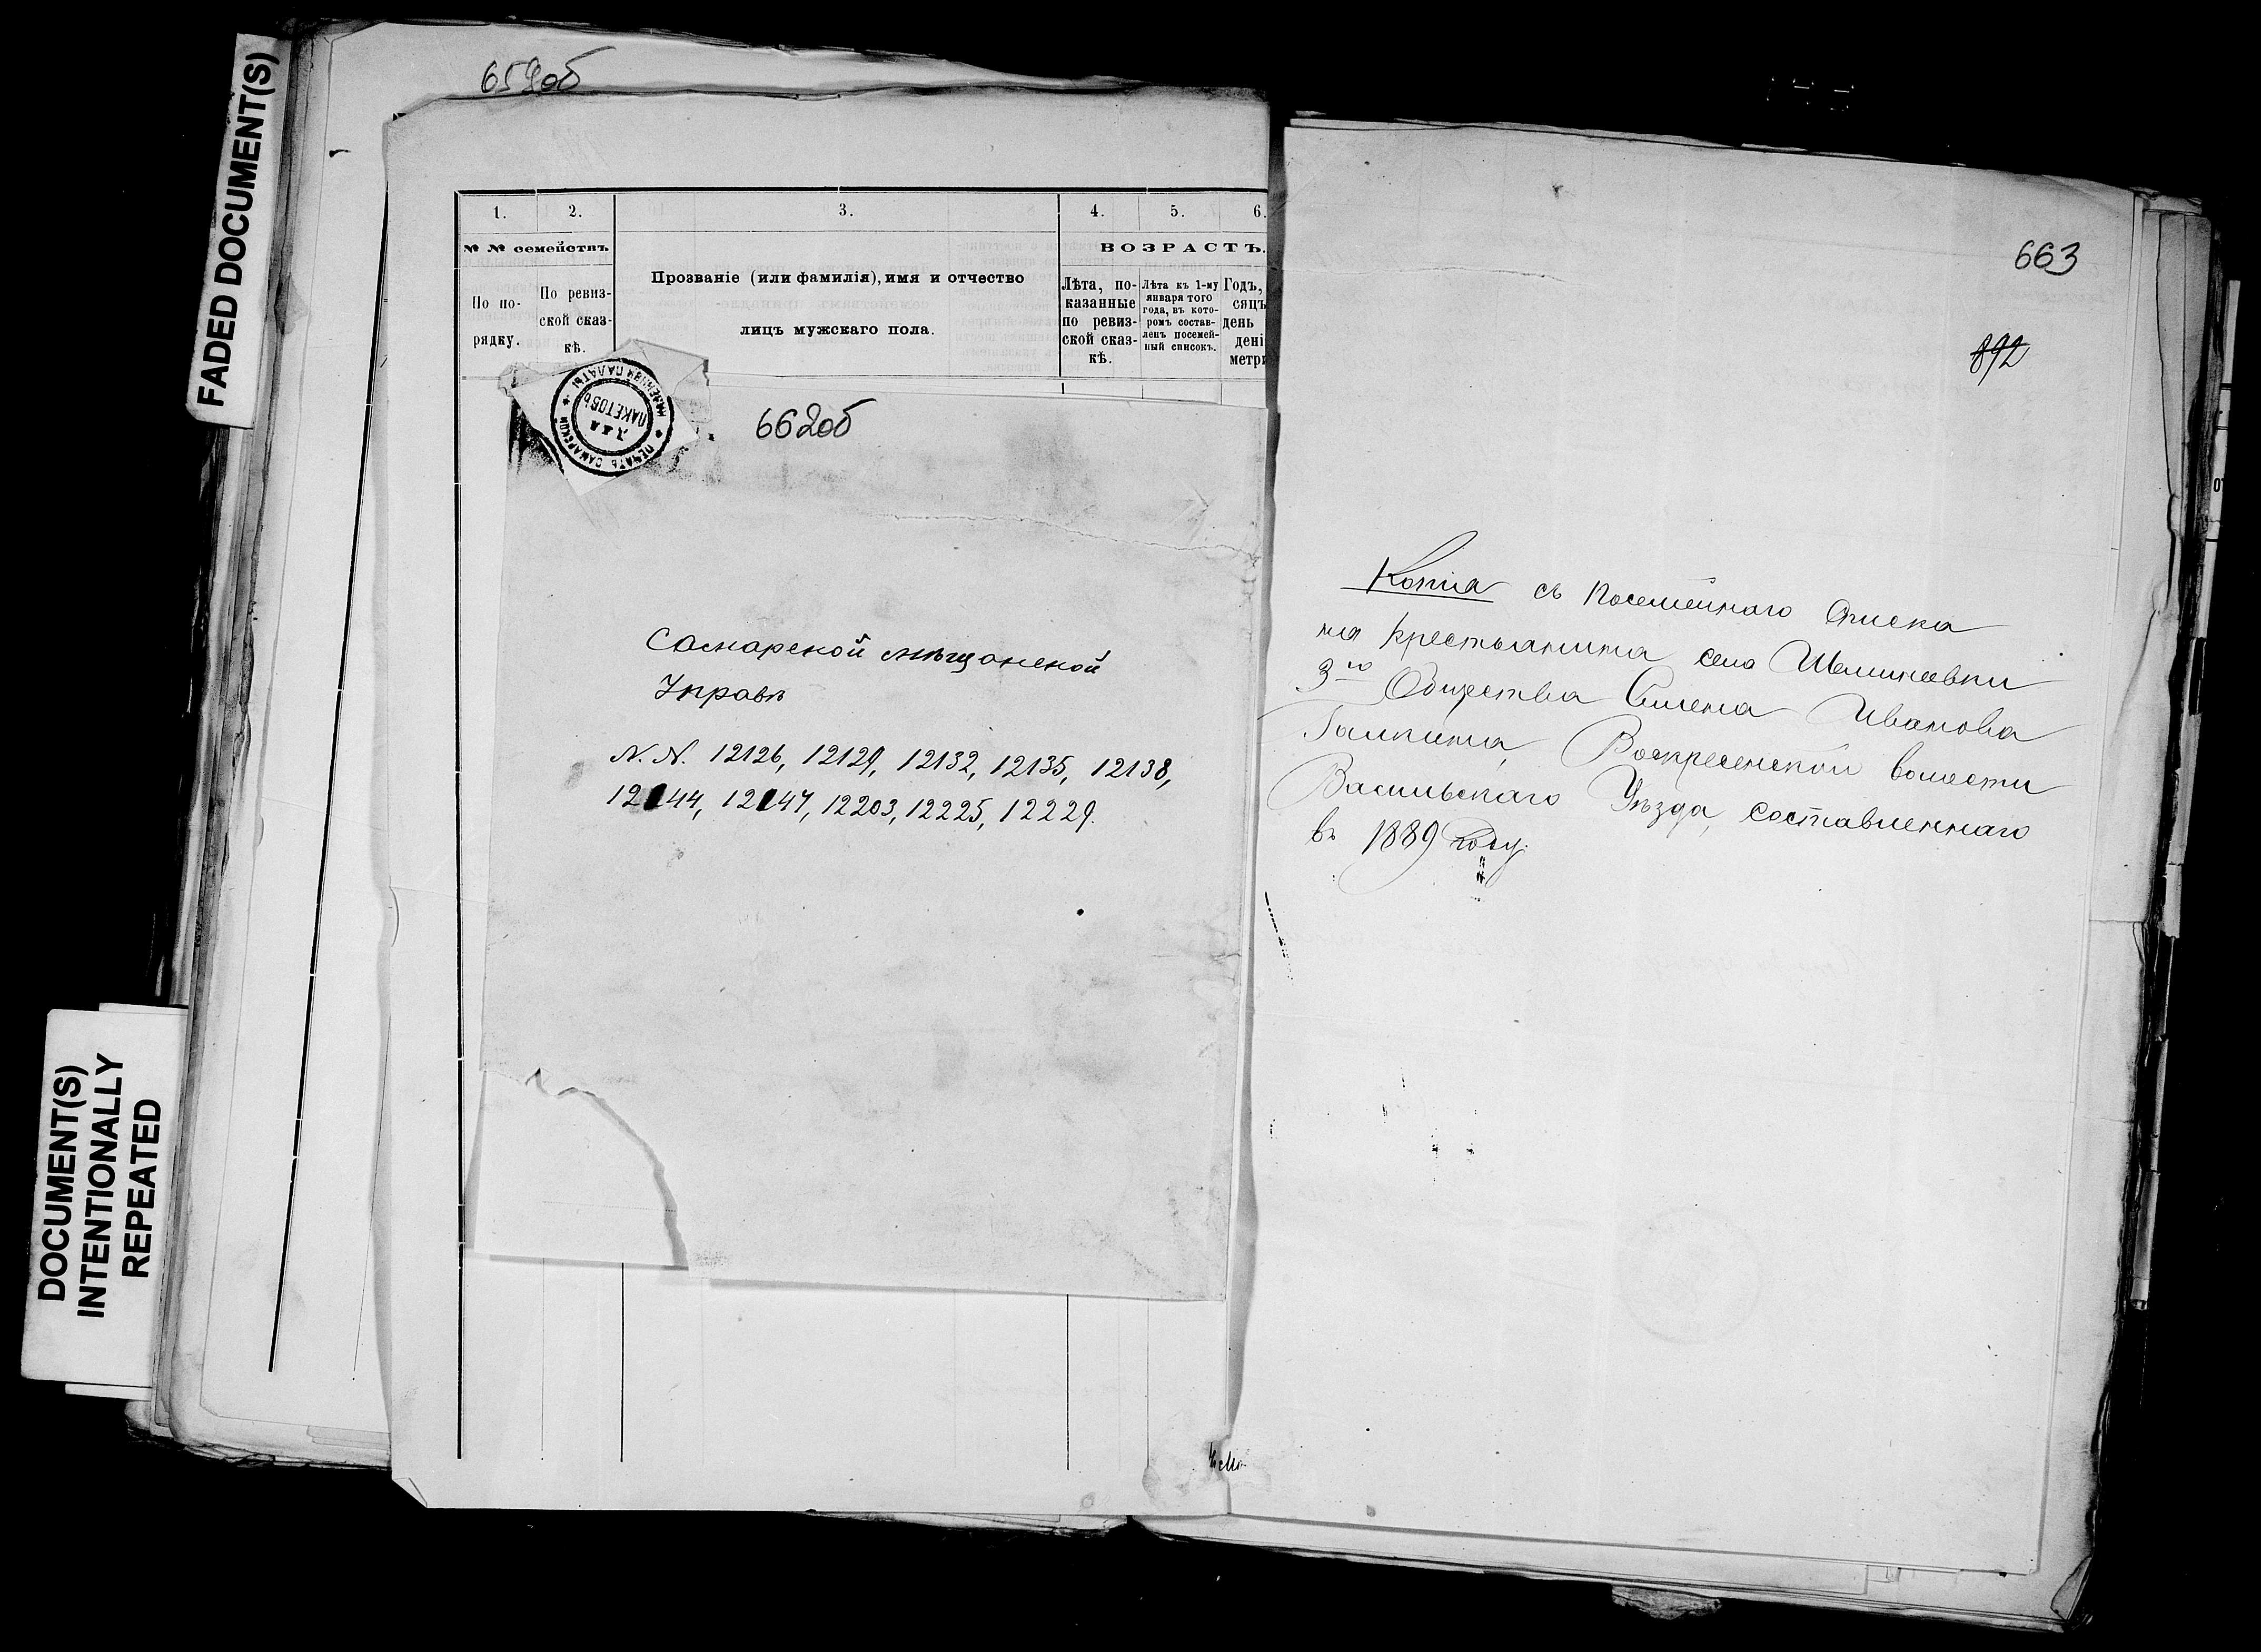 FADED DOCUMENT(S)
DOCUMENT(S)
INTENTIONALLY
REPEATED
659об
1.
2.
3.
4.
5.
6.
№ № семействъ
По по-
рядку.
По ревиз-
ской сказ-
кѣ.
Прозваніе (или фамилія), имя и отчество
лицъ мужскаго пола.
ВОЗРАСТЪ.
Лѣта, по-
казанные
по ревиз-
ской сказ-
кѣ.
Лѣта къ 1-му
января того
года, въ кото-
ромъ состав-
ленъ посемей-
ный списокъ.
Годъ,
сяцъ
день
дені
метри
ПЕЧАТЬ САМАРСКОЙ КАЗЕННОЙ ПАЛАТЫ
ДЛЯ
ПАКЕТОВЪ
662об
Самарской мѣщанской
Управѣ
N. N. 12126, 12129, 12132, 12135, 12138,
12144, 12147, 12203, 12225, 12229.
663
892
Копія съ посемейнаго списка
на крестьянина села
3го Общества Семена Иванова
Воскресенской волости
Васильскаго Уѣзда, составленнаго
въ 1889 году.